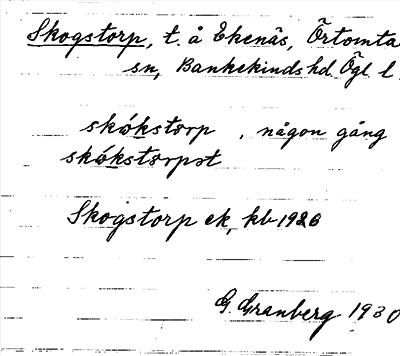 Skogstorp, t. å Ekenäs, Örtomta
sn, Bankekinds hd. Ögl l.
skókstorp, någon gång
skókstorpət
Skogstorp ek, kb 1926
G. Granberg 1930